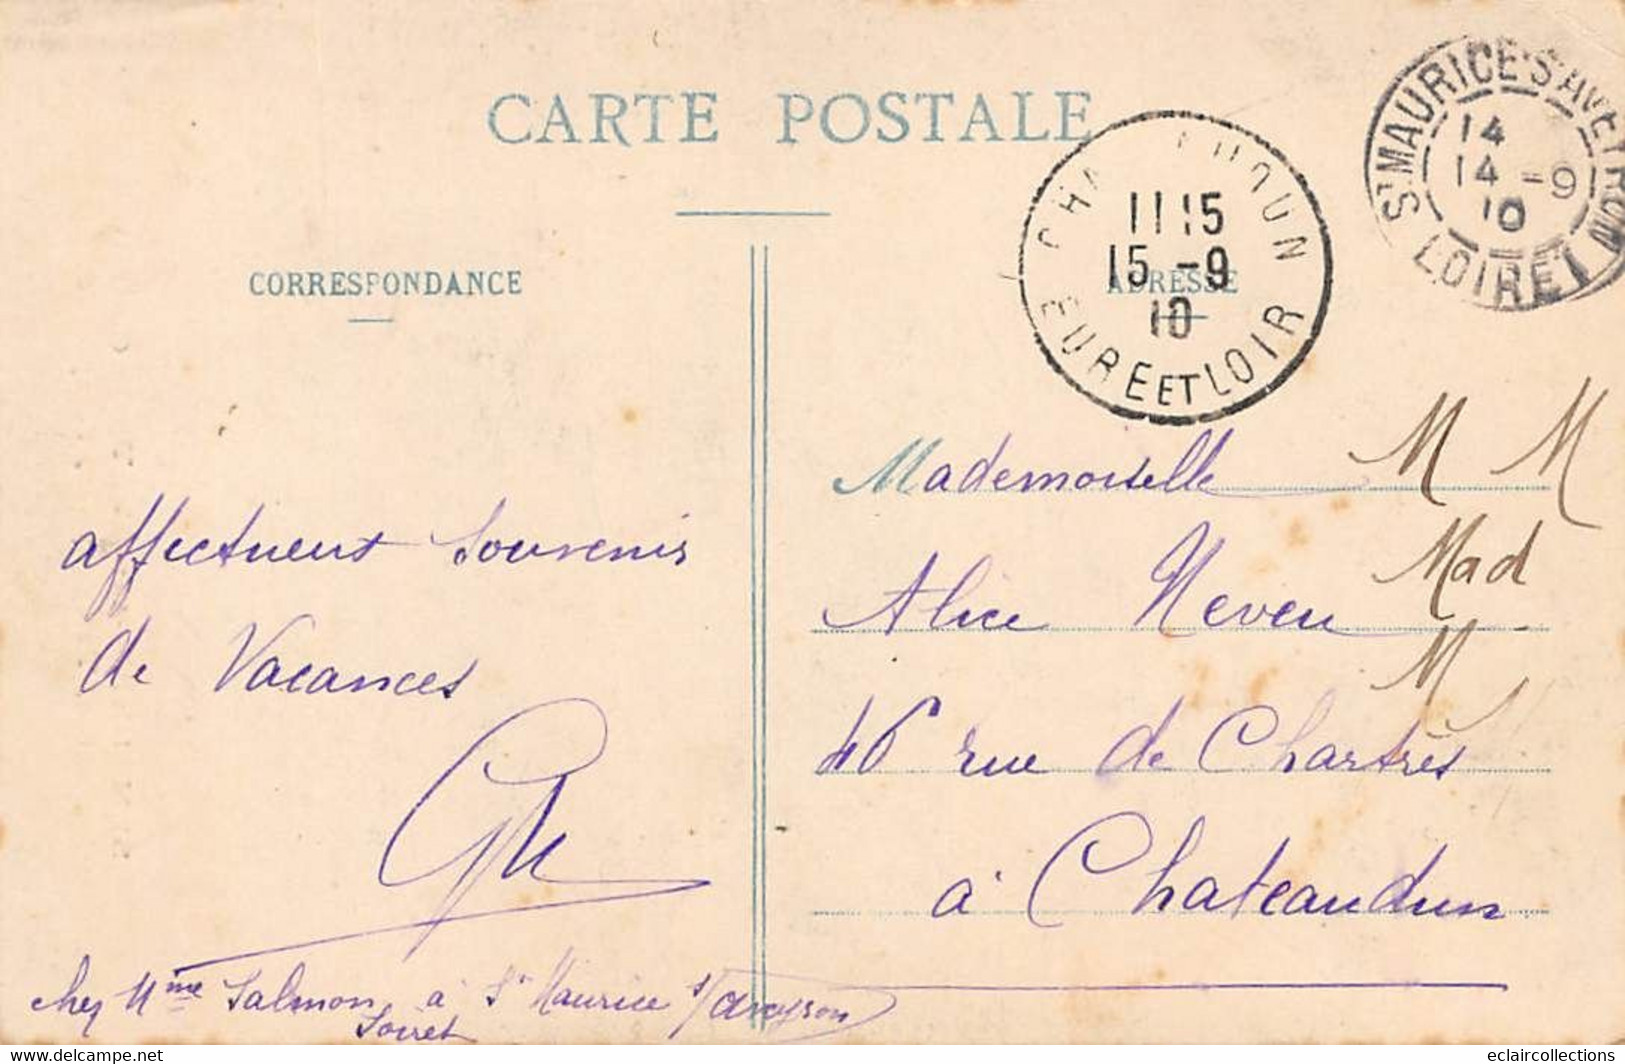 CARTE POSTALE
CORRESPONDANCE
ADRESSE
CHA EUDUN
11 15
15 -9
10
EURE ET LOIR
ST MAURICE S. AVEYRON
14
14 -9
10
LOIRET
affectueux souvenir
de Vacances
chez Mme Salmon, à St Maurice s/ aveyron
Loiret
Mademoiselle
Alice Neveu
46 rue de Chartres
à Chateaudun
M M
Mad
M
www.delcampe.net
eclaircollections